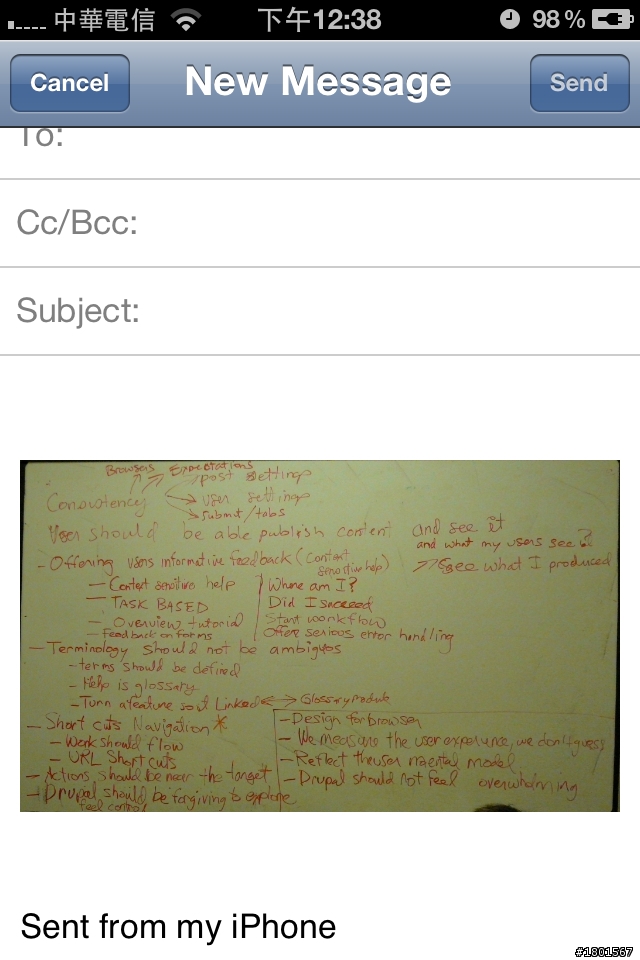 中華電信 下午12:38 98%
Cancel New Message Send
To:
Cc/Bcc:
Subject:
Browsers Expectations
post settings
Consistency user settings
submit/tabs
User should be able publish content and see it
and what my users see?
- Offering users informative feedback (context sensitive help) see what I produced
- Context sensitive help Where am I?
- TASK BASED Did I succeed
- Overview tutorial Start workflow
- feedback on forms Offer serious error handling
- Terminology should not be ambigues
- terms should be defined
- Help is glossary
- Turn a feature so it Linked Glossary Module
- Short cuts Navigation * - Design for browser
- Work should flow - We measure the user experience, we don't guess
- URL Short cuts - Reflect the user mental model
- Actions should be near the target - Drupal should not feel overwhelming
- Drupal should be forgiving to explore
feel control
Sent from my iPhone
#1801567